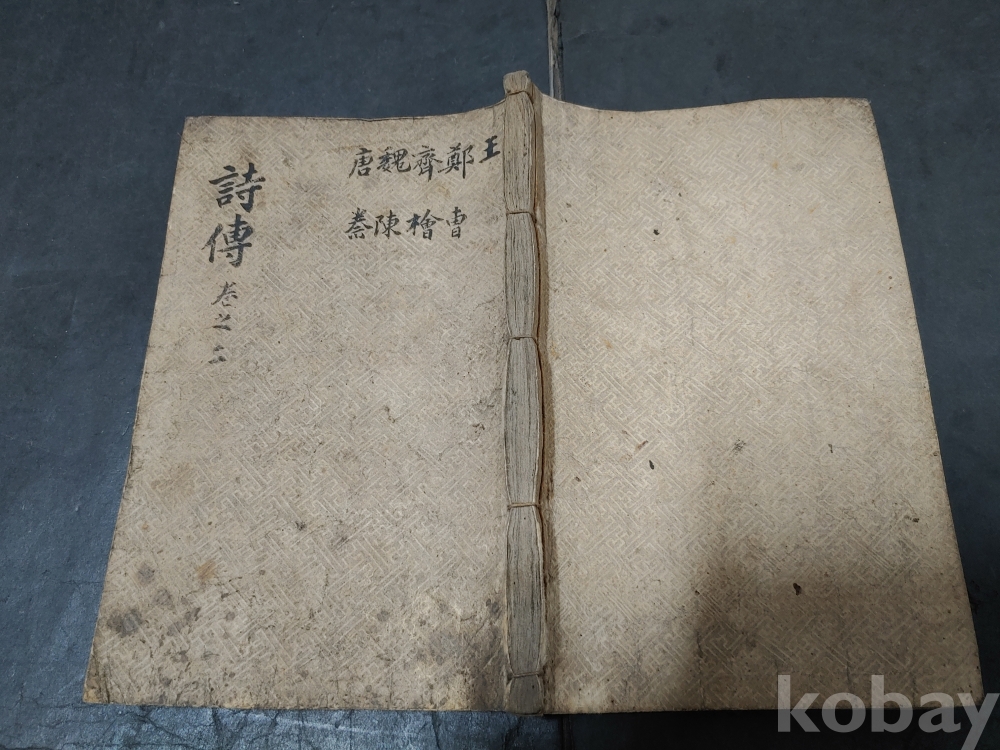 王鄭齊魏唐
曹檜陳秦
詩傳 卷之二
kobay